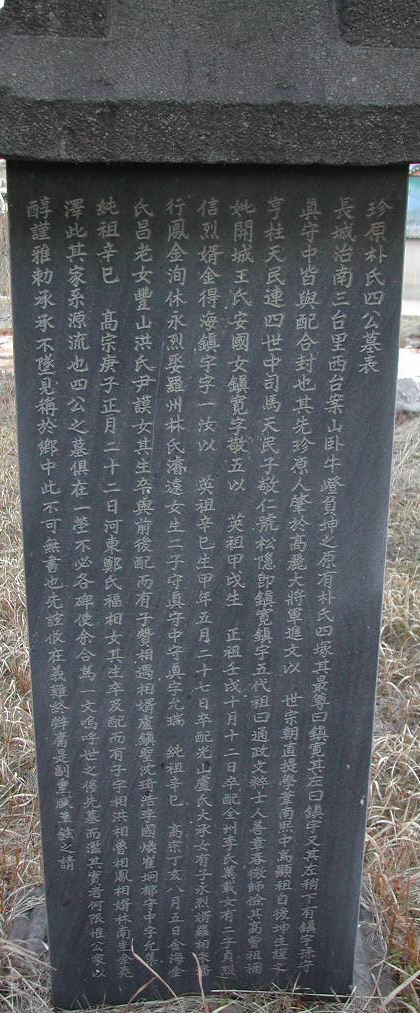 珍原朴氏四公墓表
長城治南三台里西台案山卧牛嶝負坤之原有朴氏四塚其最尊曰鎭寬其左曰鎭宇又其左稍下有鎭宇孫守
眞守中皆與配合封也其先珍原人肇於高麗大將軍進文以 世宗朝直提學熙中爲顯祖自後坤生謹之
亨柱天民連四世中司馬天民子敬仁號松隱卽鎭寬鎭宇五代祖曰通政文 士人善章春 師儉其高曾祖禰
妣開城王氏安國女鎭寬字敬五以 英祖甲戌生 正祖壬戌十月十二日卒配全州李氏萬載女有二子貞烈
信烈婿金得海鎭宇字一汝以 英祖辛巳生甲年五月二十七日卒配光山盧氏大承女有子永烈婿羅相
行鳳金洵休永烈娶羅州林氏濬遠女生二子守眞守中守眞字允瑞 純祖辛巳 高宗丁亥八月五日金海金
氏昌老女豐山洪氏尹謨女其生卒與前後配而有子贊相遇相婿盧鎭聖沈琦浩李國煥崔炯都守中字允集
純祖辛巳 高宗庚子正月二十二日河東鄭氏福相女其生卒及配而有子字相洪相魯相鳳相婿林南生金亮
澤此其家系源流也四公之墓俱在一塋不必各碑使余合爲一文嗚呼世之侈先墓而濫其實者何限惟公家以
醇謹雅勅承承不墜見稱於鄕中此不可無書也先誼攸在義難終辭庸是副重 之請